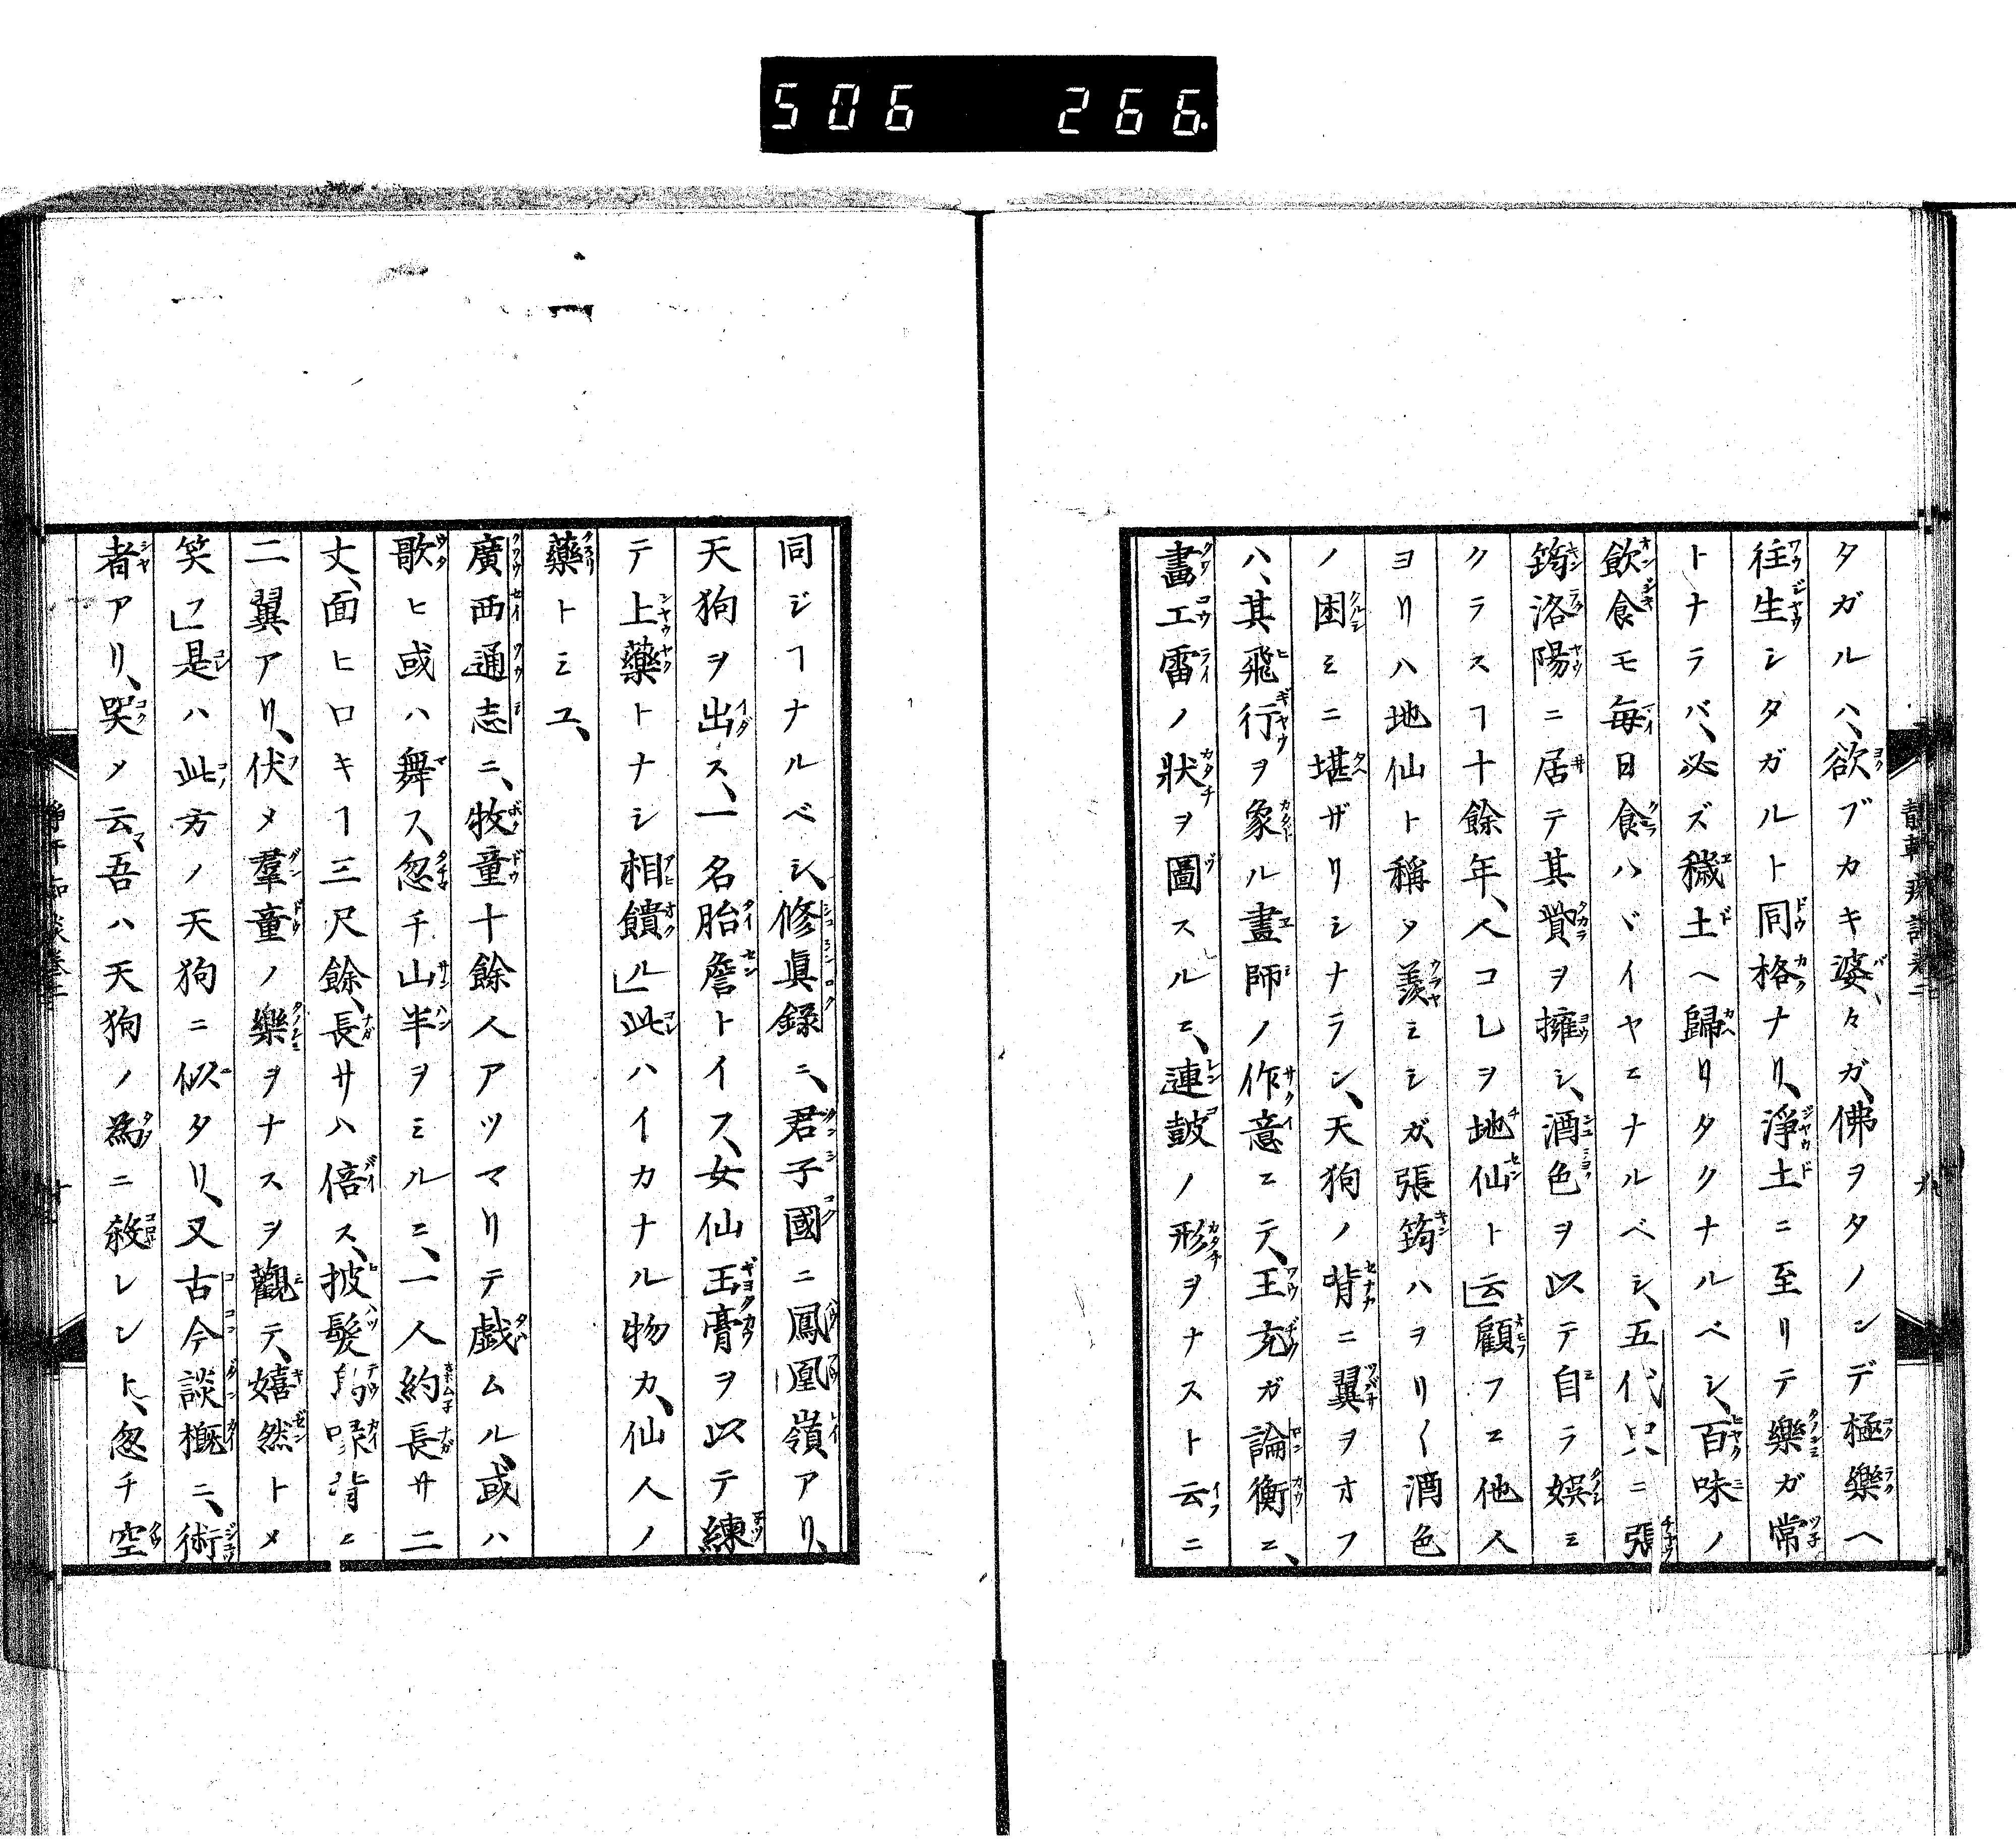 506 266
タガルハ、欲ブカキ婆々ガ、佛ヲタノンデ極樂ヘ
往生シタガルト同格ナリ、淨土ニ至リテ樂ガ常
トナラバ、必ズ穢土ヘ歸リタクナルベシ、百味ノ
飲食モ每日食ハヾイヤニナルベシ、五代史ニ張
筠洛陽ニ居テ其貲ヲ擁シ、酒色ヲ以テ自ラ娯ミ
クラスヿ十餘年、人コレヲ地仙ト云」顧フニ他人
ヨリハ地仙ト稱シ羨ミシガ、張筠ハヲリ〱酒色
ノ困ミニ堪ザリシナラン、天狗ノ背ニ翼ヲオフ
ハ、其飛行ヲ象ル畫師ノ作意ニテ、王充ガ論衡ニ、
畫工雷ノ狀ヲ圖スルニ、連鼓ノ形ヲナスト云ニ
同ジヿナルベシ、修眞錄ニ、君子國ニ鳳凰嶺アリ、
天狗ヲ出ス、一名胎詹トイフ、女仙玉膏ヲ以テ練
テ上藥トナシ相饋ル」此ハイカナル物カ、仙人ノ
藥トミユ、
廣西通志ニ、牧童十餘人アツマリテ戯ムル、或ハ
歌ヒ或ハ舞ス、忽チ山半ヲミルニ、一人約長サ二
丈、面ヒロキヿ三尺餘、長サハ倍ス、披髮鳥喙背ニ
二翼アリ、伏メ羣童ノ樂ヲナスヲ觀テ、嬉然トメ
笑フ」是ハ此方ノ天狗ニ似タリ、又古今談概ニ、術
者アリ、哭メ云、吾ハ天狗ノ爲ニ殺レント、忽チ空